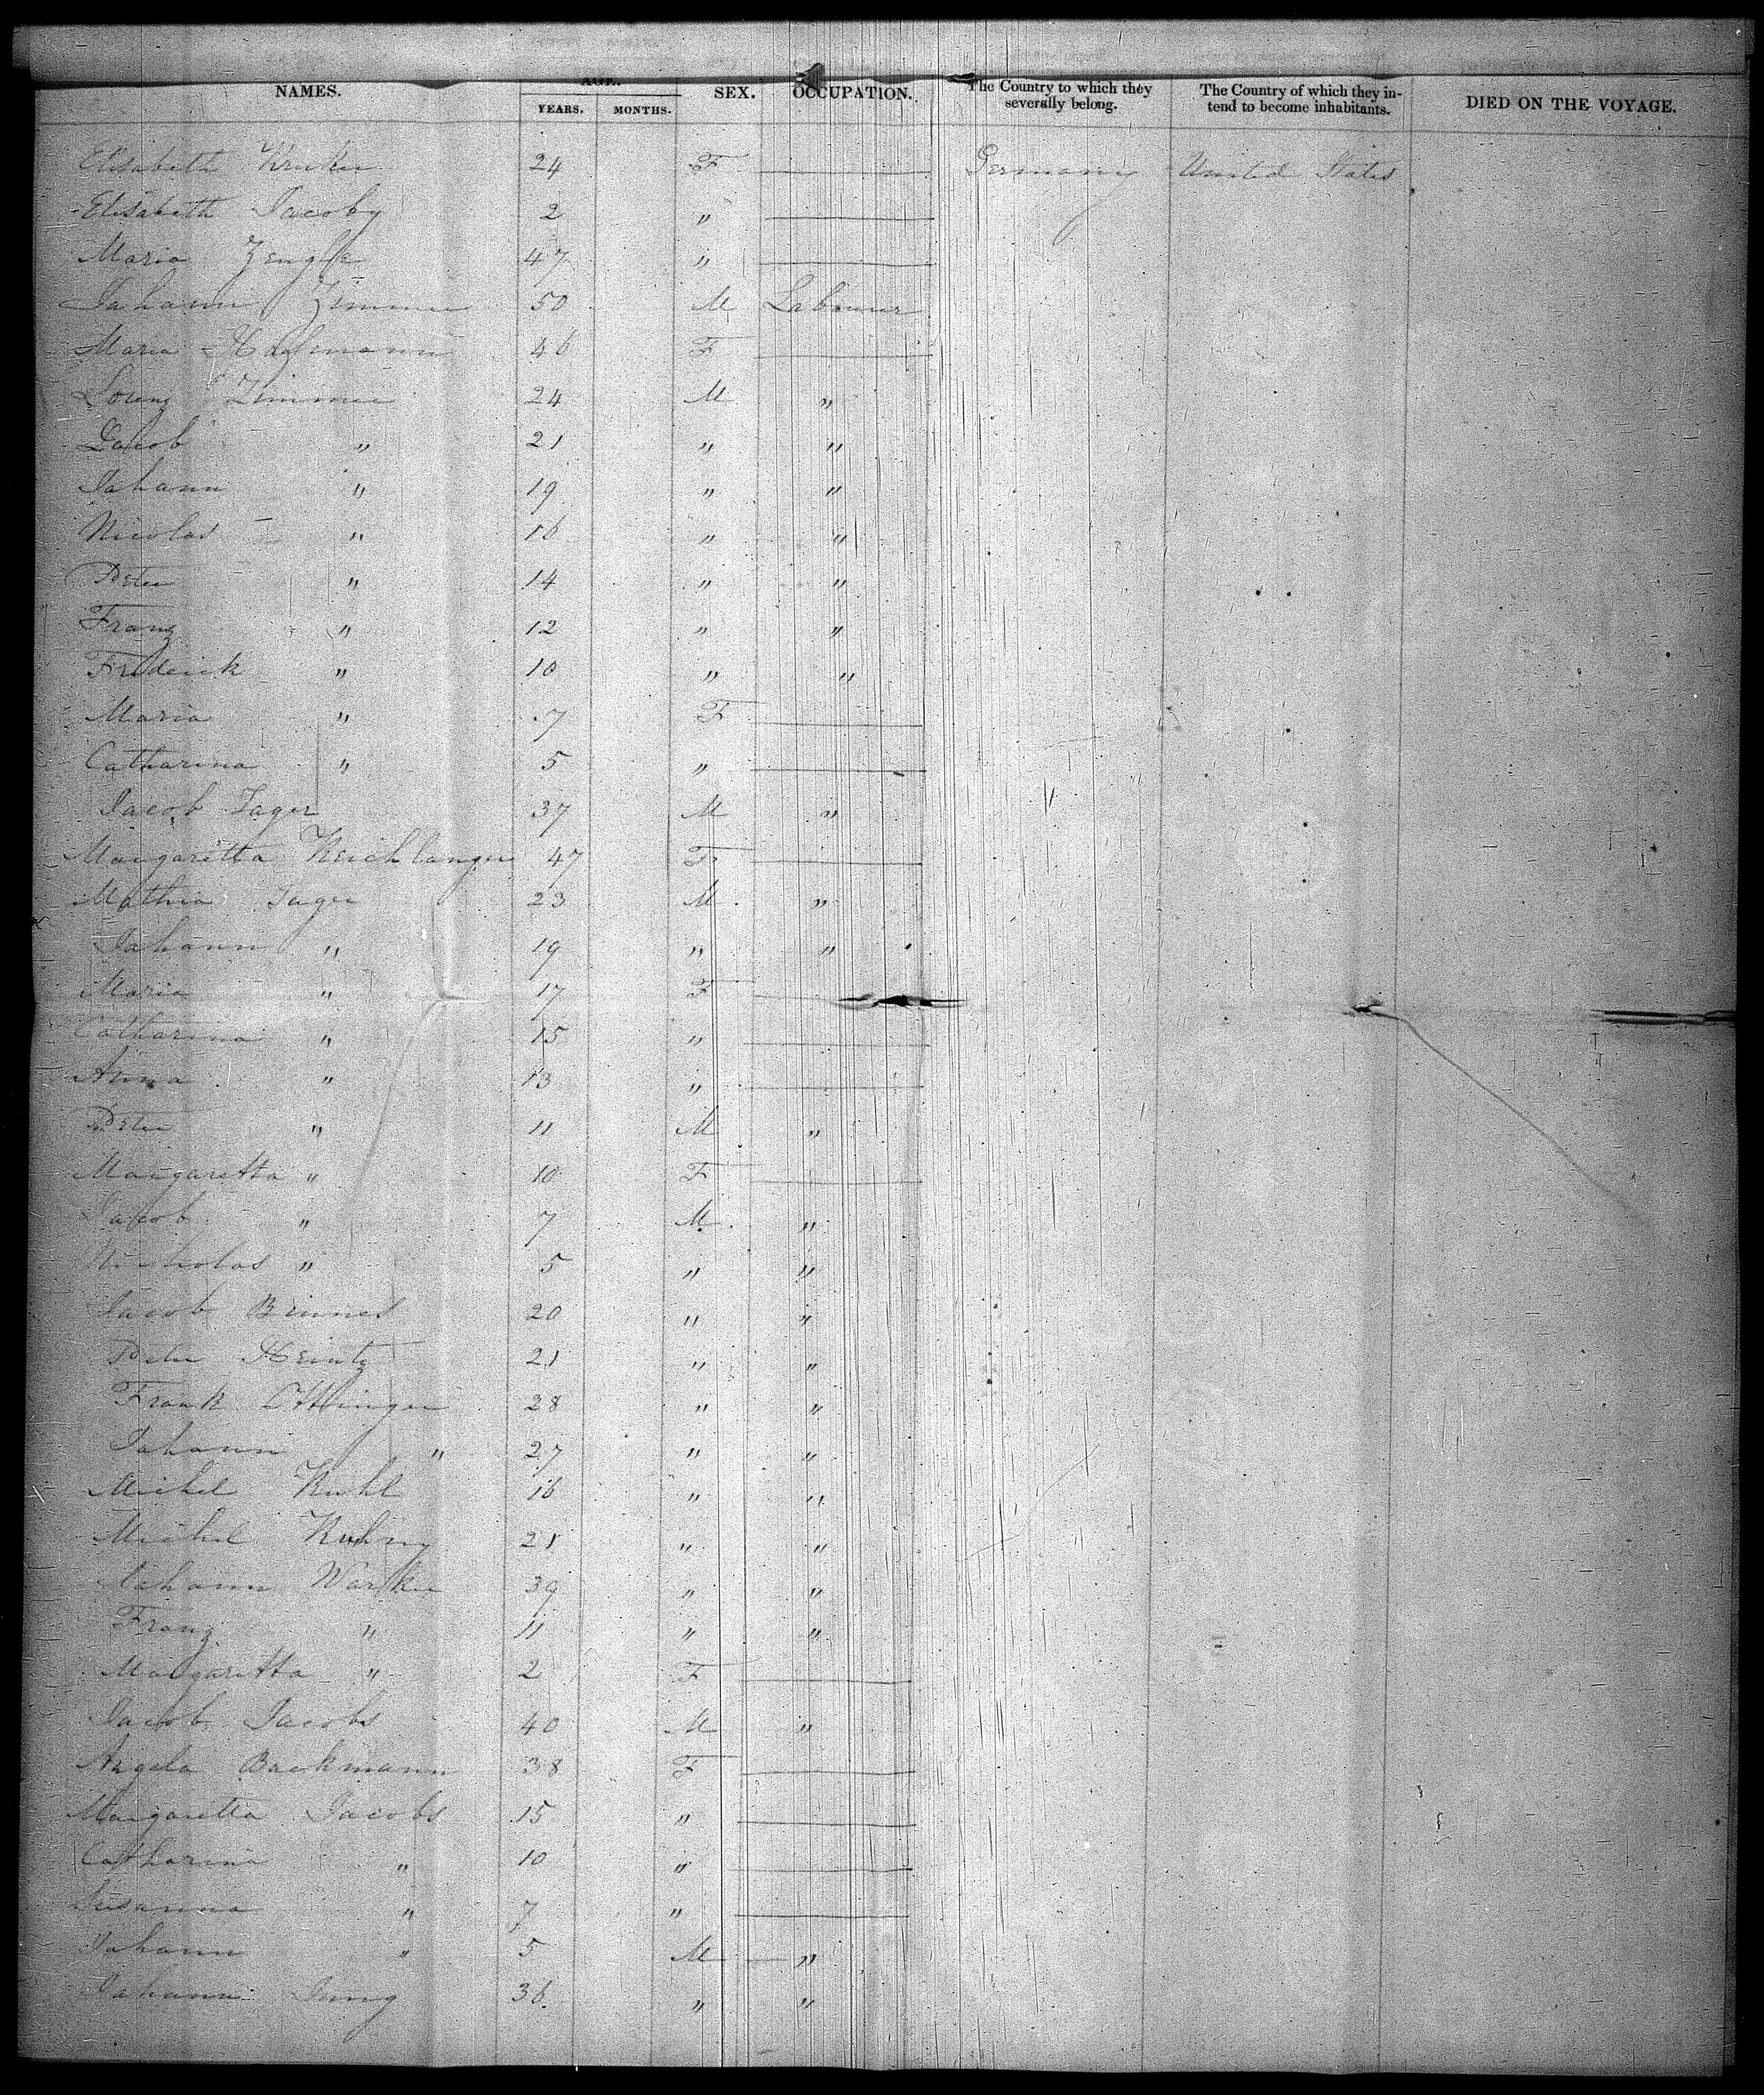 NAMES. AGE. YEARS. MONTHS. SEX. OCCUPATION. The Country to which they severally belong. The Country of which they intend to become inhabitants. DIED ON THE VOYAGE.
Elisabeth 24 F Germany United States
Elisabeth Jacoby 2 "
Maria Zengle 47 "
Johann Zimmer 50 M Labourer
Maria Hofmann 46 F
Lorenz Zimmer 24 M "
Jacob " 21 " "
Johann " 19 " "
Nicolas " 16 " "
Peter " 14 " "
Franz " 12 " "
Frederick " 10 " "
Maria " 7 F
Catharina " 5 "
Jacob Jager 37 M "
Margaretta 47 F
Mathia Jager 23 M "
Johann " 19 " "
Maria " 17 F
Catharina " 15 "
Anna " 13 "
Peter " 11 M "
Margaretta " 10 F
Jacob " 7 M "
Nicholas " 5 " "
Jacob 20 " "
Peter Heintz 21 " "
Frank Ottinger 28 " "
Johann " 27 " "
Michel Kuhl 16 " "
Michel Kuhny 21 " "
Johann 39 " "
Franz " 11 " "
Margaretta " 2 F
Jacob Jacobs 40 M "
Angela Backmann 38 F
Margaretta Jacobs 15 "
Catharina " 10 "
Susanna " 7 "
Johann " 5 M "
Johann Jung 36 " "